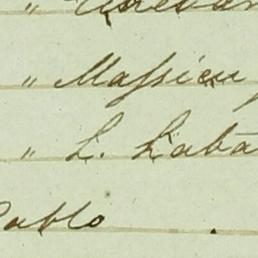 "
" Massieu
" L. Laba
Pablo